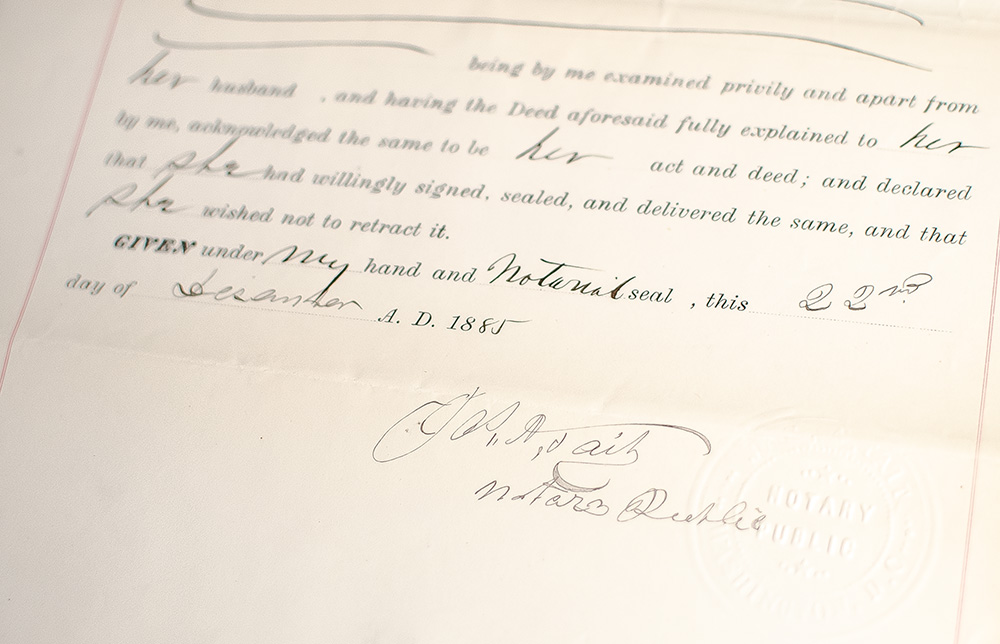 being by me examined privily and apart from
her husband , and having the Deed aforesaid fully explained to her
by me, acknowledged the same to be her act and deed; and declared
that she had willingly signed, sealed, and delivered the same, and that
she wished not to retract it.
GIVEN under my hand and Notarial seal , this 22nd
day of December A. D. 1885
A. Tait
Notary Public
NOTARY
PUBLIC